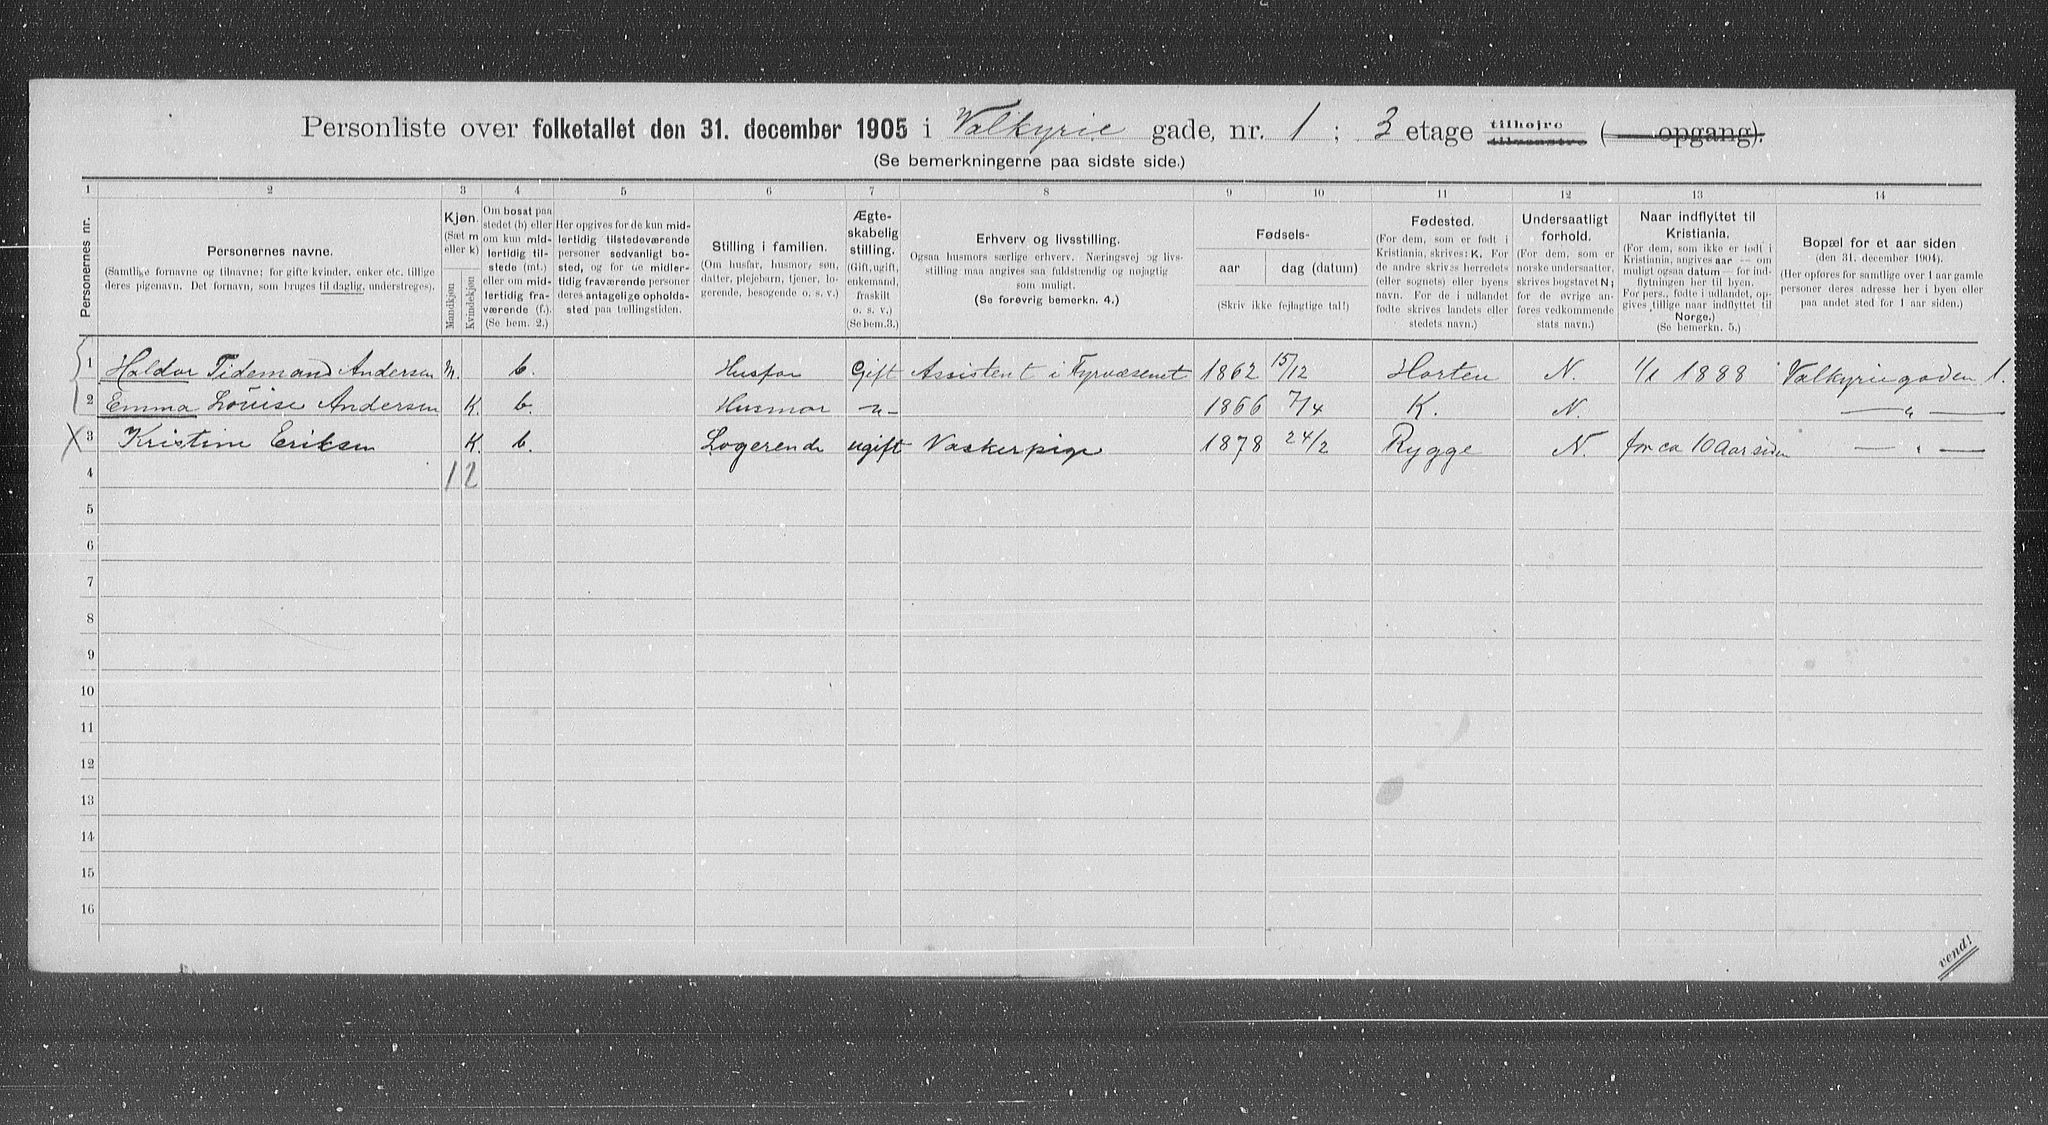 Personliste over folketallet den 31. december 1905 i Valkyrie gade, nr. 1 ; 3 etage tilhøjre tilvenstre ( opgang).
(Se bemerkningerne paa sidste side.)
1 2 3 4 5 6 7 8 9 10 11 12 13 14
Personernes nr.
Personernes navne.
(Samtlige fornavne og tilnavne; for gifte kvinder, enker etc. tillige
deres pigenavn. Det fornavn, som bruges til daglig, understreges).
Kjøn.
(Sæt m
eller k)
Mandkjøn
Kvindekjøn
Om bosat paa
stedet (b) eller
om kun mid-
lertidig til-
stede (mt.)
eller om mid-
lertidig fra-
værende (f.).
(Se bem. 2.)
Her opgives for de kun mid-
lertidig tilstedeværende
personer sedvanligt bo-
sted, og for de midler-
tidig fraværende personer
deres antagelige opholds-
sted paa tællingstiden.
Stilling i familien.
(Om husfar, husmor, søn,
datter, plejebarn, tjener, lo-
gerende, besøgende o. s. v.)
Ægte-
skabelig
stilling.
(Gift, ugift,
enkemand,
fraskilt
o. s. v.)
(Se bem. 3.)
Erhverv og livsstilling.
Ogsaa husmors særlige erhverv. Næringsvej og livs-
stilling maa angives saa fuldstændig og nøjagtig
som muligt.
(Se forøvrig bemerkn. 4.)
Fødsels-
aar dag (datum)
(Skriv ikke fejlagtige tal!)
Fødested.
(For dem, som er født i
Kristiania, skrives: K. For
de andre skrives herredets
(eller sognets) eller byens
navn. For de i udlandet
fødte skrives landets eller
stedets navn.)
Undersaatligt
forhold.
(For dem, som er
norske undersaatter,
skrives bogstavet N;
for de øvrige an-
føres vedkommende
stats navn.)
Naar indflyttet til
Kristiania.
(For dem, som ikke er født i
Kristiania, angives aar — om
muligt ogsaa datum — for ind-
flytningen her til byen.
For pers., født i udlandet, op-
gives tillige naar indflyttet til
Norge.)
(Se bemerkn. 5.)
Bopæl for et aar siden
(den 31. december 1904).
(Her opføres for samtlige over 1 aar gamle
personer deres adresse her i byen eller
paa andet sted for 1 aar siden.)
1 Haldor Tidemand Andersen m. b. Husfar Gift Assistent i Fyrvæsenet 1862 15/12 Horten N. 1/1 1888 Valkyriegaden 1.
2 Emma Louise Andersen K. b. Husmor —"— 1866 7/4 K. N. —"—
X 3 Kristine Eriksen K. b. Logerende ugift Vaskerpige 1878 24/2 Rygge N. for ca 10 Aar siden —"—
4 1 2
5
6
7
8
9
10
11
12
13
14
15
16
vend!